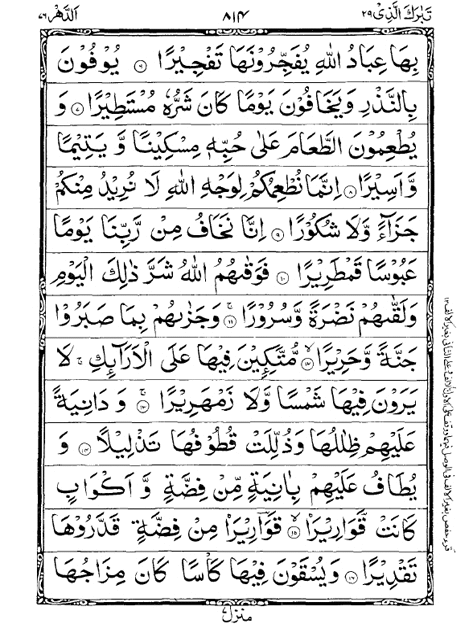 تبٰرك الذي ٢٩
٨١٤
الدهر ٧٦
بِهَا عِبَادُ اللّٰهِ يُفَجِّرُوْنَهَا تَفْجِيْرًا ۝٦ يُوْفُوْنَ
بِالنَّذْرِ وَيَخَافُوْنَ يَوْمًا كَانَ شَرُّهٗ مُسْتَطِيْرًا ۝٧ وَ
يُطْعِمُوْنَ الطَّعَامَ عَلٰى حُبِّهٖ مِسْكِيْنًا وَّ يَتِيْمًا
وَّ اَسِيْرًا ۝٨ اِنَّمَا نُطْعِمُكُمْ لِوَجْهِ اللّٰهِ لَا نُرِيْدُ مِنْكُمْ
جَزَآءً وَّلَا شُكُوْرًا ۝٩ اِنَّا نَخَافُ مِنْ رَّبِّنَا يَوْمًا
عَبُوْسًا قَمْطَرِيْرًا ۝١٠ فَوَقٰىهُمُ اللّٰهُ شَرَّ ذٰلِكَ الْيَوْمِ
وَلَقّٰىهُمْ نَضْرَةً وَّسُرُوْرًا ۝١١ وَجَزٰىهُمْ بِمَا صَبَرُوْا
جَنَّةً وَّحَرِيْرًا ۝١٢ مُّتَّكِـِٕيْنَ فِيْهَا عَلَى الْاَرَآئِكِ ۚ لَا
يَرَوْنَ فِيْهَا شَمْسًا وَّلَا زَمْهَرِيْرًا ۝١٣ وَ دَانِيَةً
عَلَيْهِمْ ظِلٰلُهَا وَذُلِّلَتْ قُطُوْفُهَا تَذْلِيْلًا ۝١٤ وَ
يُطَافُ عَلَيْهِمْ بِاٰنِيَةٍ مِّنْ فِضَّةٍ وَّ اَكْوَابٍ
كَانَتْ قَوَارِيْرَا۠ ۝١٥ قَوَارِيْرَا۠ مِنْ فِضَّةٍ قَدَّرُوْهَا
تَقْدِيْرًا ۝١٦ وَيُسْقَوْنَ فِيْهَا كَاْسًا كَانَ مِزَاجُهَا
منزل ٧